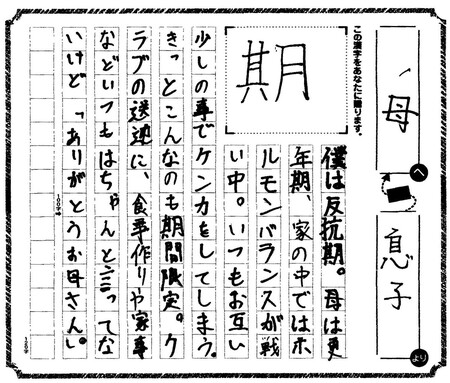 母へ
息子より
この漢字をあなたに贈ります。
期
僕は反抗期。母は更
年期、家の中ではホ
ルモンバランスが戦
い中。いつもお互い
少しの事でケンカをしてしまう。
きっとこんなのも期間限定。ク
ラブの送迎に、食事作りや家事
などいつもはちゃんと言ってな
いけど「ありがとうお母さん」。
100字
120字